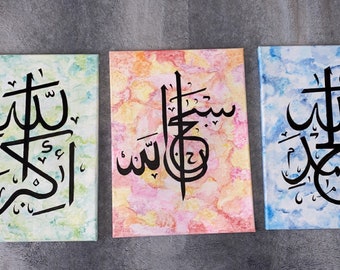 الله أكبر
سبحان الله
الحمد لله